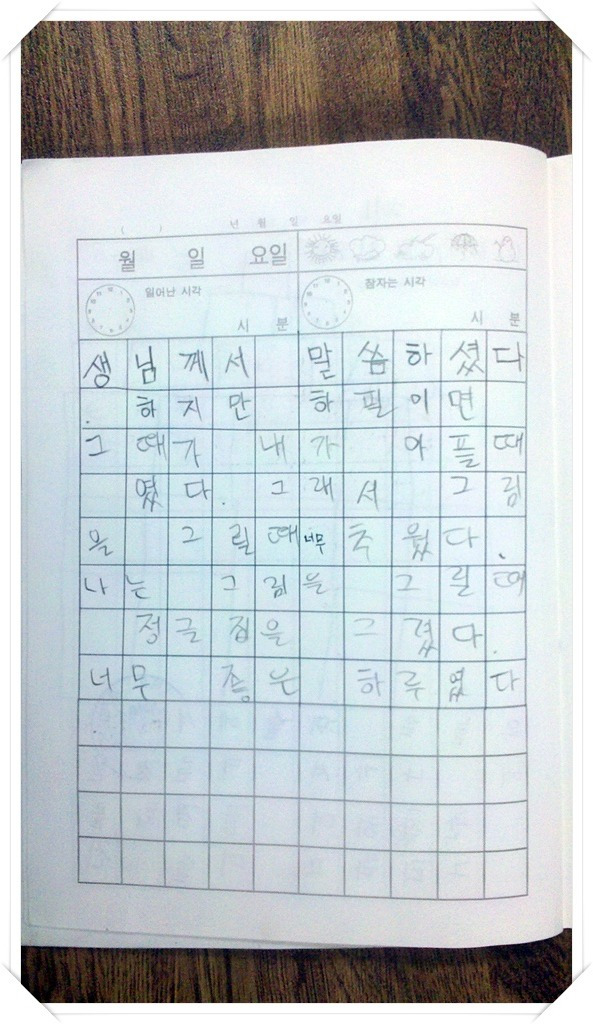 ( ) 년 월 일 요일
월 일 요일
일어난 시각 시 분 잠자는 시각 시 분
생님께서 말씀하셨다
. 하지만 하필이면
그때가 내가 아플때
였다. 그래서 그림
을 그릴때 너무 추웠다.
나는 그림을 그릴때
정글집을 그렸다.
너무 즐은 하루였다